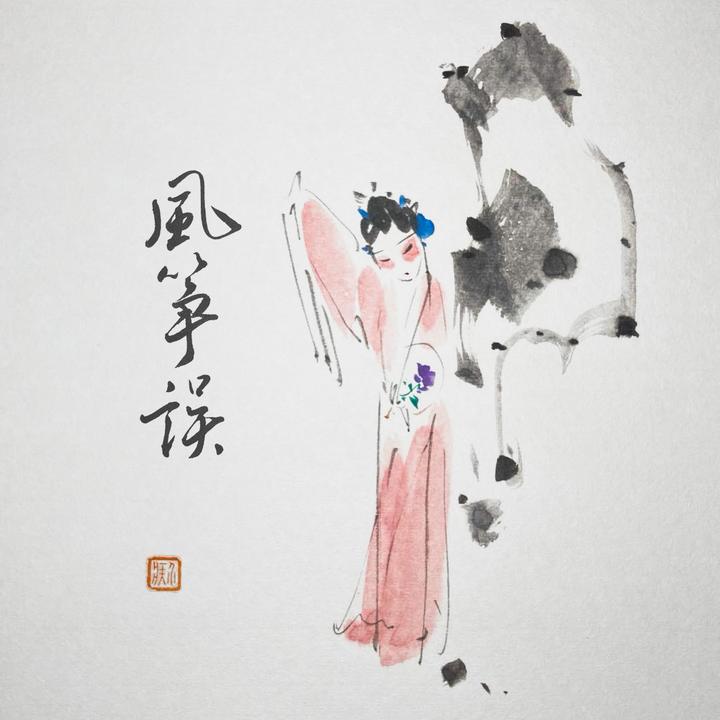 風箏誤